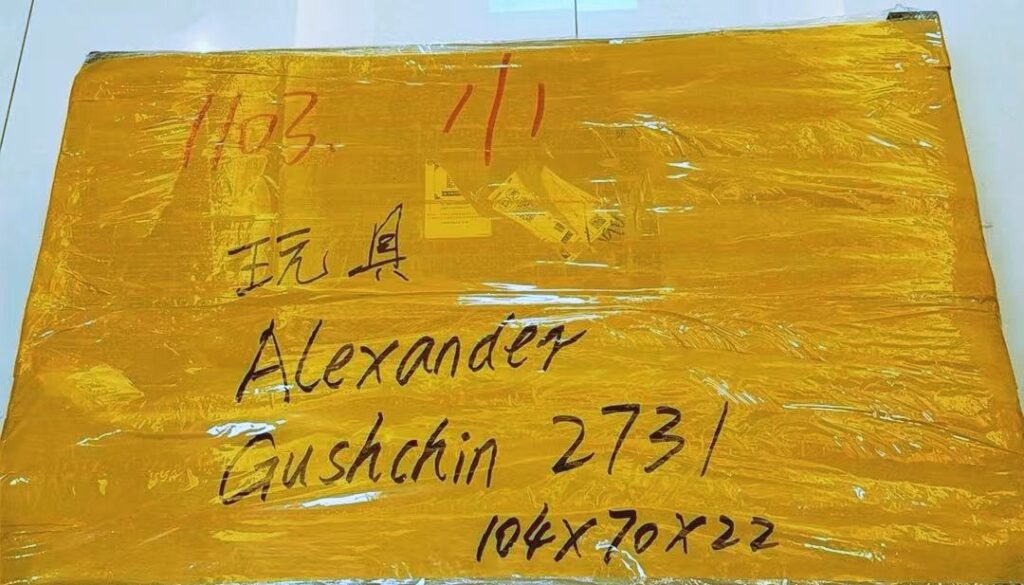 1103. 1/1
玩具
Alexander
Gushchin 2731
104x70x22